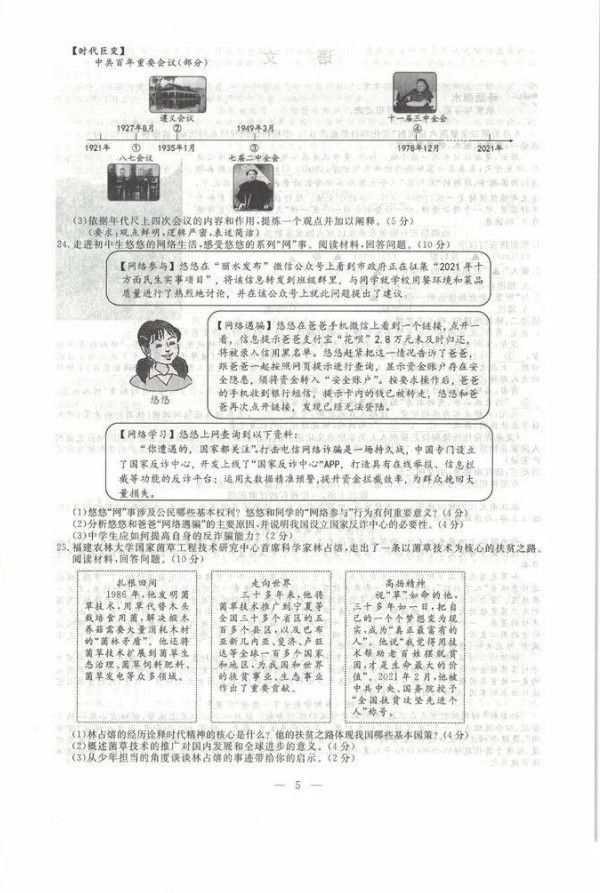 【时代巨变】
中共百年重要会议(部分)
遵义会议
十一届三中全会
1927年8月 ② 1949年3月 ④
1921年 ① 1935年1月 ③ 1978年12月 2021年
八七会议 七届二中全会
(3)依据年代尺上四次会议的内容和作用,提炼一个观点并加以阐释。(5分)
(要求:观点鲜明,逻辑严密,表述简洁)
24.走进初中生悠悠的网络生活,感受悠悠的系列“网”事。阅读材料,回答问题。(10分)
【网络参与】悠悠在“丽水发布”微信公众号上看到市政府正在征集“2021年十
方面民生实事项目”,将该信息转发到班级群里,与同学就学校用餐环境和菜品
质量进行了热烈地讨论,并在该公众号上就此问题提出了建议。
悠悠
【网络遇骗】悠悠在爸爸手机微信上看到一个链接,点开一
看,信息提示爸爸支付宝“花呗”2.8万元未及时归还,
将被录入信用黑名单。悠悠赶紧把这一情况告诉了爸爸,
跟爸爸一起按照网页提示进行查询,显示资金账户存在安
全隐患,须将资金转入“安全账户”。按要求操作后,爸爸
的手机收到银行短信,提示卡内的钱已被转走,悠悠和爸
爸再次点开链接,发现已经无法登陆。
【网络学习】悠悠上网查询到以下资料:
“你遭遇的,国家都关注”。打击电信网络诈骗是一场持久战,中国专门设立
了国家反诈中心,开发上线了“国家反诈中心”APP,打造具有在线举报、信息拦
截等功能的反诈平台;运用大数据精准预警,提升资金拦截效率,为群众挽回大
量损失。
(1)悠悠“网”事涉及公民哪些基本权利?悠悠和同学的“网络参与”行为有何重要意义?(4分)
(2)分析悠悠和爸爸“网络遇骗”的主要原因,并说明我国设立国家反诈中心的必要性。(4分)
(3)中学生应如何提高自身的反诈骗能力?(2分)
25.福建农林大学国家菌草工程技术研究中心首席科学家林占熺,走出了一条以菌草技术为核心的扶贫之路。
阅读材料,回答问题。(10分)
扎根田间
1986年,他发明菌
草技术,用草代替木头
栽培食用菌,解决椴木
养菇需要大量消耗木材
的“菌林矛盾”。他还将
菌草技术扩展到菌草生
态治理、菌草饲料肥料、
菌草发电等众多领域。
走向世界
三十多年来,他将
菌草技术推广到宁夏等
全国三十多个省区的五
百多个县区,以及巴布
亚新几内亚、斐济、卢旺
达等全球一百多个国家
和地区,为我国和世界
的扶贫事业、生态事业
作出了重要贡献。
高扬精神
视“草”如命的他,
三十多年如一日,把自
己的一个个梦想变为现
实,成为“真正最富有的
人”。他说“我觉得用技
术帮助老百姓摆脱贫
困,才是生命最大的价
值”。2021年2月,他被
中共中央、国务院授予
“全国扶贫攻坚先进个
人”称号。
(1)林占熺的经历诠释时代精神的核心是什么?他的扶贫之路体现我国哪些基本国策?(4分)
(2)概述菌草技术的推广对国内发展和全球进步的意义。(4分)
(3)从少年担当的角度谈谈林占熺的事迹带给你的启示。(2分)
— 5 —